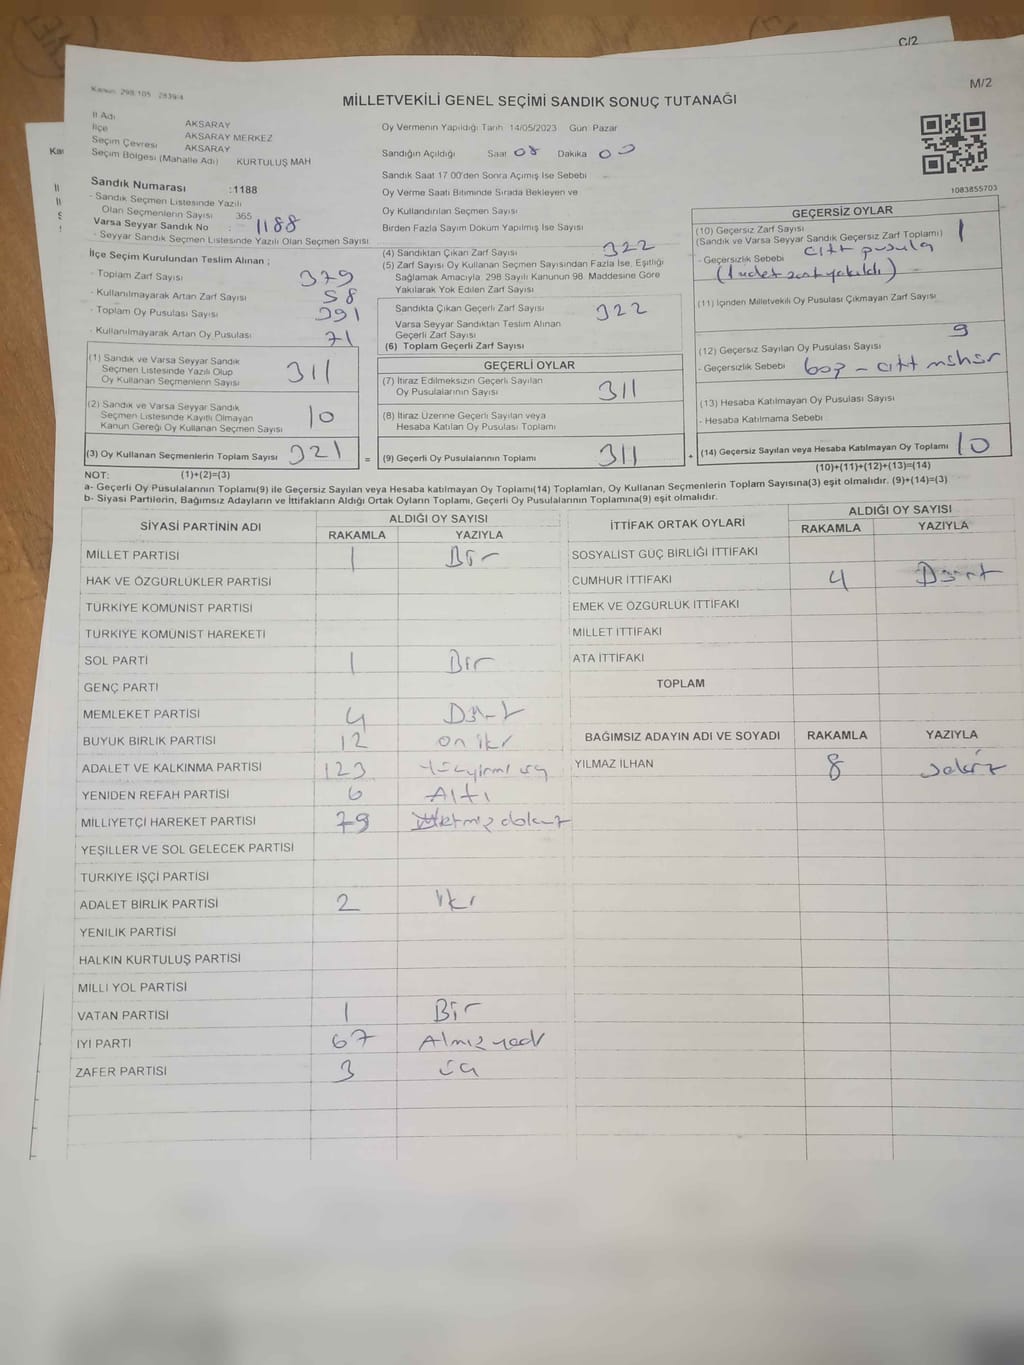 C/2
Kanun 298/105 2839/4
M/2
MİLLETVEKİLİ GENEL SEÇİMİ SANDIK SONUÇ TUTANAĞI
İl Adı AKSARAY
İlçe AKSARAY MERKEZ
Seçim Çevresi AKSARAY
Seçim Bölgesi (Mahalle Adı) KURTULUŞ MAH
Sandık Numarası :1188
- Sandık Seçmen Listesinde Yazılı
Olan Seçmenlerin Sayısı 365
Varsa Seyyar Sandık No : 1188
- Seyyar Sandık Seçmen Listesinde Yazılı Olan Seçmen Sayısı
İlçe Seçim Kurulundan Teslim Alınan ;
- Toplam Zarf Sayısı 379
- Kullanılmayarak Artan Zarf Sayısı 58
- Toplam Oy Pusulası Sayısı 391
- Kullanılmayarak Artan Oy Pusulası 71
(1) Sandık ve Varsa Seyyar Sandık
Seçmen Listesinde Yazılı Olup
Oy Kullanan Seçmenlerin Sayısı 311
(2) Sandık ve Varsa Seyyar Sandık
Seçmen Listesinde Kayıtlı Olmayan
Kanun Gereği Oy Kullanan Seçmen Sayısı 10
(3) Oy Kullanan Seçmenlerin Toplam Sayısı 321 =
Oy Vermenin Yapıldığı Tarih 14/05/2023 Gün Pazar
Sandığın Açıldığı Saat 08 Dakika 00
Sandık Saat 17 00'den Sonra Açımış İse Sebebi
Oy Verme Saati Bitiminde Sırada Bekleyen ve
Oy Kullandırılan Seçmen Sayısı
Birden Fazla Sayım Döküm Yapılmış İse Sayısı
(4) Sandıktan Çıkan Zarf Sayısı 322
(5) Zarf Sayısı Oy Kullanan Seçmen Sayısından Fazla İse, Eşitliği
Sağlamak Amacıyla, 298 Sayılı Kanunun 98. Maddesine Göre
Yakılarak Yok Edilen Zarf Sayısı
Sandıkta Çıkan Geçerli Zarf Sayısı 322
Varsa Seyyar Sandıktan Teslim Alınan
Geçerli Zarf Sayısı
(6) Toplam Geçerli Zarf Sayısı
GEÇERLİ OYLAR
(7) İtiraz Edilmeksizin Geçerli Sayılan
Oy Pusulalarının Sayısı 311
(8) İtiraz Üzerine Geçerli Sayılan veya
Hesaba Katılan Oy Pusulası Toplamı
(9) Geçerli Oy Pusulalarının Toplamı 311 +
1083855703
GEÇERSİZ OYLAR
(10) Geçersiz Zarf Sayısı
(Sandık ve Varsa Seyyar Sandık Geçersiz Zarf Toplamı) 1
- Geçersizlik Sebebi çift pusula
(1 adet zarf yakıldı)
(11) İçinden Milletvekili Oy Pusulası Çıkmayan Zarf Sayısı
9
(12) Geçersiz Sayılan Oy Pusulası Sayısı
- Geçersizlik Sebebi boş - çift mühür
(13) Hesaba Katılmayan Oy Pusulası Sayısı
- Hesaba Katılmama Sebebi
(14) Geçersiz Sayılan veya Hesaba Katılmayan Oy Toplamı 10
NOT: (1)+(2)=(3) (10)+(11)+(12)+(13)=(14)
a- Geçerli Oy Pusulalarının Toplamı(9) ile Geçersiz Sayılan veya Hesaba katılmayan Oy Toplamı(14) Toplamları, Oy Kullanan Seçmenlerin Toplam Sayısına(3) eşit olmalıdır. (9)+(14)=(3)
b- Siyasi Partilerin, Bağımsız Adayların ve İttifakların Aldığı Ortak Oyların Toplamı, Geçerli Oy Pusulalarının Toplamına(9) eşit olmalıdır.
SİYASİ PARTİNİN ADI ALDIĞI OY SAYISI
RAKAMLA YAZIYLA
MİLLET PARTİSİ 1 Bir
HAK VE ÖZGÜRLÜKLER PARTİSİ
TÜRKİYE KOMÜNİST PARTİSİ
TÜRKİYE KOMÜNİST HAREKETİ
SOL PARTİ 1 Bir
GENÇ PARTİ
MEMLEKET PARTİSİ 4 Dört
BÜYÜK BİRLİK PARTİSİ 12 on iki
ADALET VE KALKINMA PARTİSİ 123 yüzyirmi üç
YENİDEN REFAH PARTİSİ 6 Altı
MİLLİYETÇİ HAREKET PARTİSİ 79
YEŞİLLER VE SOL GELECEK PARTİSİ
TÜRKİYE İŞÇİ PARTİSİ
ADALET BİRLİK PARTİSİ 2 iki
YENİLİK PARTİSİ
HALKIN KURTULUŞ PARTİSİ
MİLLİ YOL PARTİSİ
VATAN PARTİSİ 1 Bir
İYİ PARTİ 67 Atmış yedi
ZAFER PARTİSİ 3 üç
İTTİFAK ORTAK OYLARI ALDIĞI OY SAYISI
RAKAMLA YAZIYLA
SOSYALİST GÜÇ BİRLİĞİ İTTİFAKI
CUMHUR İTTİFAKI 4 Dört
EMEK VE ÖZGÜRLÜK İTTİFAKI
MİLLET İTTİFAKI
ATA İTTİFAKI
TOPLAM
BAĞIMSIZ ADAYIN ADI VE SOYADI RAKAMLA YAZIYLA
YILMAZ İLHAN 8 sekiz